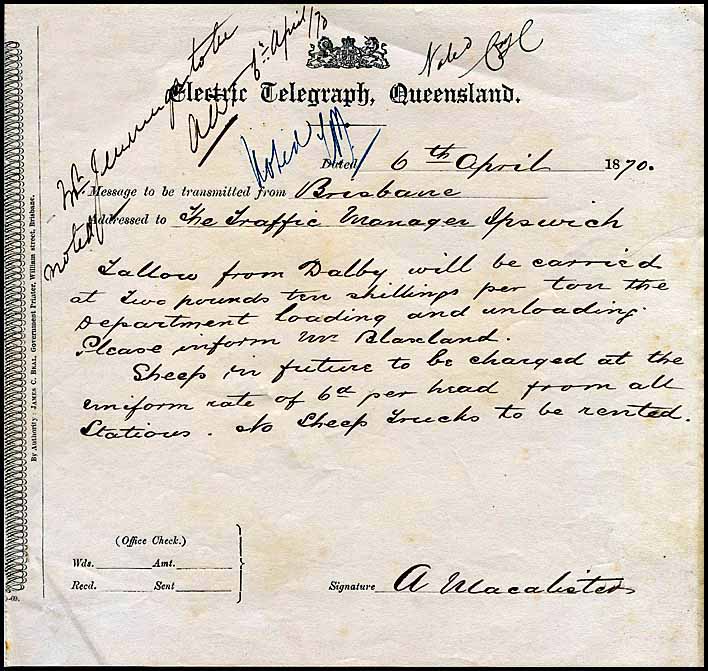 Mr. Jennings to be
noted
8th April/70
Noted
Noted
Electric Telegraph, Queensland.
Dated 6th April 1870.
Message to be transmitted from Brisbane
Addressed to The Traffic Manager Ipswich
Tallow from Dalby will be carried
at two pounds ten shillings per ton the
Department loading and unloading.
Please inform Mr Blaxland.
Sheep in future to be charged at the
uniform rate of 6d per head from all
Stations. No Sheep Trucks to be rented.
(Office Check.)
Wds. Amt.
Recd. Sent
Signature A Macalister
By Authority: JAMES C. BEAL, Government Printer, William street, Brisbane.
-69.